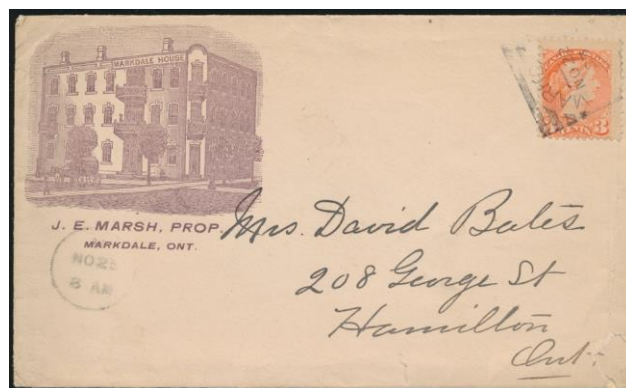 MARKDALE HOUSE
J. E. MARSH, PROP.
MARKDALE, ONT.
NO 25
8 AM
Mrs. David Bates
208 George St
Hamilton
Ont.
3